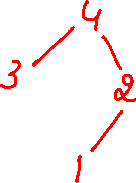 4
3 2
1